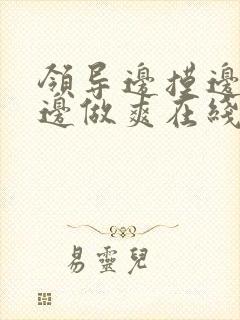 領导邊摸邊
邊做爽在綫
易靈兒